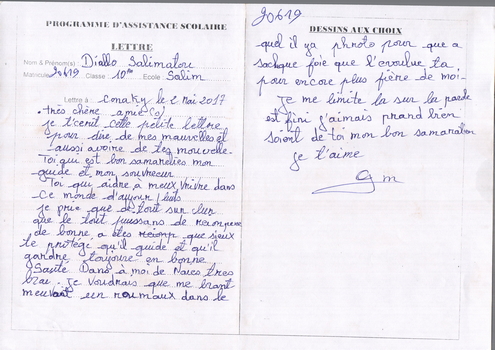 PROGRAMME D'ASSISTANCE SCOLAIRE
LETTRE
Nom & Prénom(s) Diallo Salimatou
Matricule 20619 Classe 10ème Ecole Salim
Lettre à: Conakry le 2 mai 2017
très chère amie(s)
je t'ecrit cette petite lettre
pour dire de mes mauvelles et
aussi avoire de tes mouvelle.
Toi qui est bon samarelies mon
guide et mon souvreur
Toi qui aidre à meux vivre dans
ce monde d'aujour
je prie que de tout sur lur
que le tout puissans de recompense
de bonne a tes que sieux
te protégé qu'il guide et qu'il
gardre toujoure en bonne
Santé Dans à moi de Naus tres
brai. Je voudrais que me
un roumaux dans le
20619
DESSINS AUX CHOIX
quel il ya photo pour que a
sachque foie que l'enoulue ta
pour encore plus fière de moi.
Je me limite la sur la parde
est fini j'aimais prand bien
soient de toi mon bon samaration
je t'aime